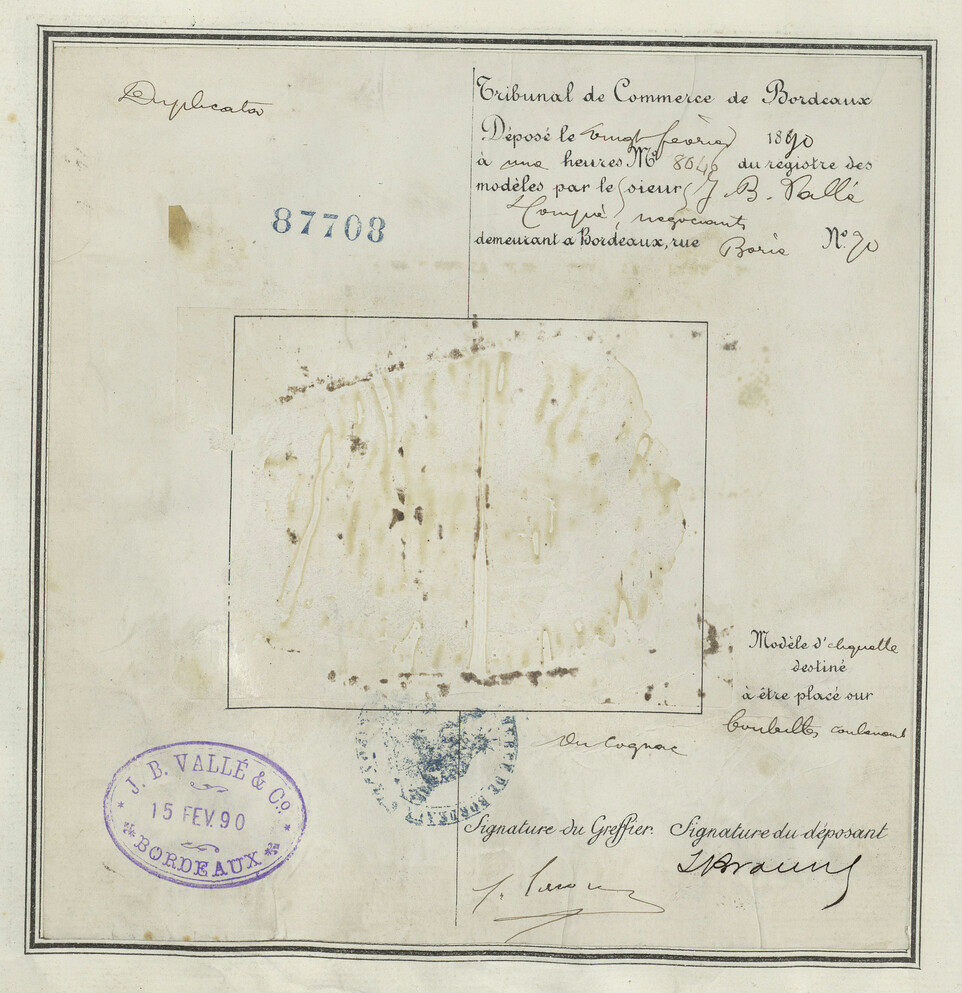 Duplicata
87708
Tribunal de Commerce de Bordeaux
Déposé le vingt février 1890
à une heures No 8040 du registre des
modèles par le sieur J. B. Vallé
& Compie, negociants
demeurant à Bordeaux, rue Borie No. 90
Modèle d'etiquette
destiné
à être placé sur
bouteilles contenant
du Cognac
J. B. VALLÉ & Co.
15 FEV. 90
BORDEAUX
DE BORDEAUX
Signature du Greffier. Signature du déposant